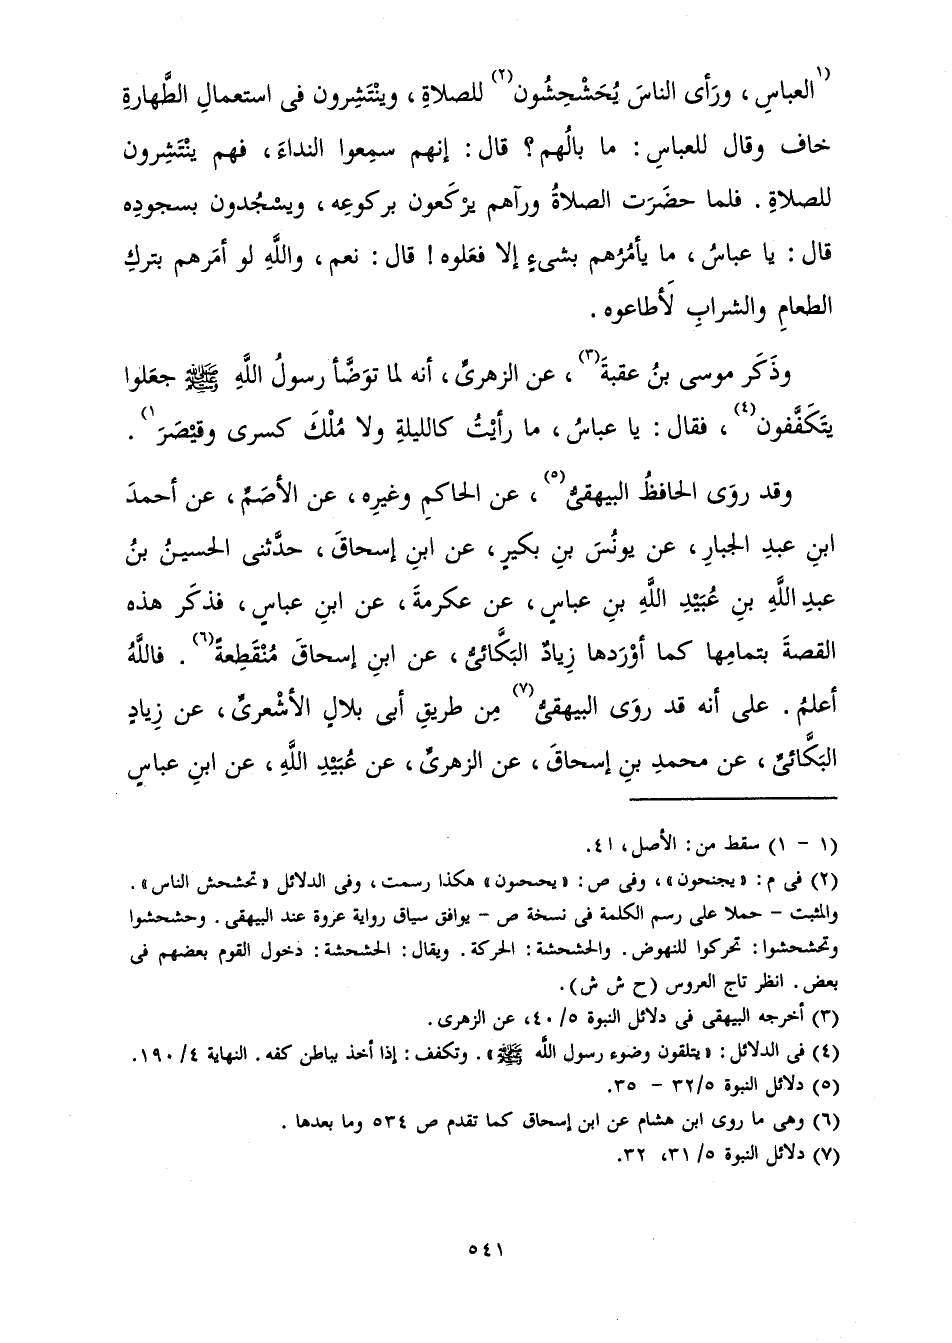 (١العباسِ ، ورَأى الناسَ يُحَشْحِشُون(٢) للصلاةِ ، ويتْتَشِرون فى استعمالِ الطَّهارةِ
خاف وقال للعباسِ : ما بالُهم ؟ قال : إنهم سمِعوا النداءَ ، فهم يتْتَشِرون
للصلاةِ . فلما حضَرَت الصلاةُ ورآهم يرْكَعون بركوعِه ، ويسْجُدون بسجودِه
قال : يا عباسُ ، ما يأمُرُهم بشىءٍ إلا فعَلوه ! قال : نعم ، واللَّهِ لو أمَرهم بتركِ
الطعامِ والشرابِ لَأطاعوه .
وذَكَر موسى بنُ عقبةَ(٣) ، عن الزهرىِّ ، أنه لما توَضَّأ رسولُ اللَّهِ ﷺ جعَلوا
يتَكَفَّفون(٤) ، فقال : يا عباسُ ، ما رأيْتُ كالليلةِ ولا مُلْكَ كسرى وقيْصَرَ١) .
وقد روَى الحافظُ البيهقىُّ(٥) ، عن الحاكمِ وغيرِه ، عن الأصَمِّ ، عن أحمدَ
ابنِ عبدِ الجبارِ ، عن يونُسَ بنِ بكيرٍ ، عن ابنِ إسحاقَ ، حدَّثنى الحسينُ بنُ
عبدِ اللَّهِ بنِ عُبَيْدِ اللَّهِ بنِ عباسٍ ، عن عكرمةَ ، عن ابنِ عباسٍ ، فذكَر هذه
القصةَ بتمامِها كما أوْرَدها زيادٌ البَكَّائىُّ ، عن ابنِ إسحاقَ مُنْقَطِعةً(٦) . فاللَّهُ
أعلمُ . على أنه قد روَى البيهقىُّ(٧) مِن طريقِ أبى بلالٍ الأشْعرىِّ ، عن زِيادٍ
البَكَّائىِّ ، عن محمدِ بنِ إسحاقَ ، عن الزهرىِّ ، عن عُبَيْدِ اللَّهِ ، عن ابنِ عباسٍ
(١ - ١) سقط من : الأصل ، ٤١.
(٢) فى م : «يجنحون» ، وفى ص : «يحسحون» هكذا رسمت ، وفى الدلائل «تخشحش الناس» .
والمثبت - حملا على رسم الكلمة فى نسخة ص - يوافق سياق رواية عروة عند البيهقى . وحشحشوا
وتحشحشوا : تحركوا للنهوض . والحشحشة : الحركة . ويقال : الحشحشة : دخول القوم بعضهم فى
بعض . انظر تاج العروس (ح ش ش) .
(٣) أخرجه البيهقى فى دلائل النبوة ٥/ ٤٠، عن الزهرى .
(٤) فى الدلائل : «يتلقون وضوء رسول اللَّه ﷺ» . وتكفف : إذا أخذ بباطن كفه . النهاية ٤/ ١٩٠.
(٥) دلائل النبوة ٥/ ٣٢ - ٣٥.
(٦) وهى ما روى ابن هشام عن ابن إسحاق كما تقدم ص ٥٣٤ وما بعدها .
(٧) دلائل النبوة ٥/ ٣١، ٣٢.
٥٤١